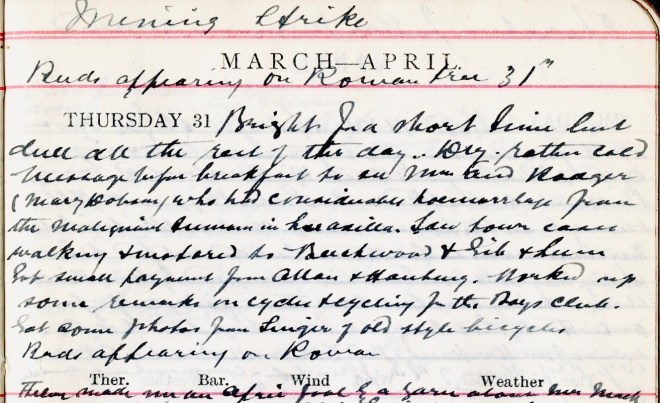 Mining Strike
MARCH—APRIL.
Buds appearing on Rowan tree 31st
THURSDAY 31 Bright for a short time but
dull all the rest of the day. Dry. rather cold
Message before breakfast to see Mrs Rodger
(Mary Dobson) who had considerable haemorrhage from
the malignant tumour in her axilla. Saw town cases
walking & motored to Beechwood &
Got small payment from Allan & Hanbury. Worked up
some remarks on cycles & cycling for the Boys Club.
Got some photos from Singer of old style bicycles
Buds appearing on Rowan
Ther. Bar. Wind Weather
made me an April fool &amp; a yarn about Mrs